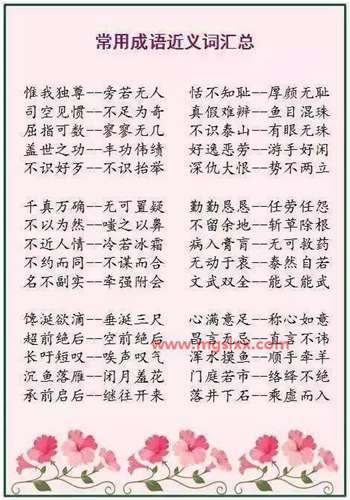 常用成语近义词汇总
惟我独尊--旁若无人 恬不知耻--厚颜无耻
司空见惯--不足为奇 真假难辨--鱼目混珠
屈指可数--寥寥无几 不识泰山--有眼无珠
盖世之功--丰功伟绩 好逸恶劳--游手好闲
不识好歹--不识抬举 深仇大恨--势不两立
千真万确--无可置疑 勤勤恳恳--任劳任怨
不以为然--嗤之以鼻 不留余地--斩草除根
不近人情--冷若冰霜 病入膏肓--无可救药
不约而同--不谋而合 无动于衷--泰然自若
名不副实--牵强附会 文武双全--能文能武
馋涎欲滴--垂涎三尺 心满意足--称心如意
超前绝后--空前绝后 昌言无忌--直言不讳
长吁短叹--唉声叹气 浑水摸鱼--顺手牵羊
沉鱼落雁--闭月羞花 门庭若市--络绎不绝
承前启后--继往开来 落井下石--乘虚而入
www.mgslxx.com